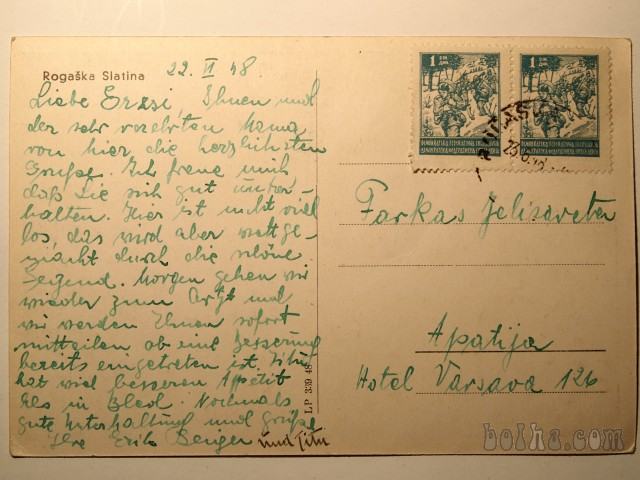 Rogaška Slatina
22. VI 48.
Liebe Erzsi, Ihnen und
der sehr verehrten Mama
von hier die herzlichsten
Grüße. Ich freue mich
daß Sie sich gut unter-
halten. Hier ist nicht viel
los, das wird aber wettge-
macht durch die schöne
Gegend. Morgen gehen wir
wieder zum Arzt und
wir werden Ihnen sofort
mitteilen ob eine Besserung
bereits eingetreten ist. Titus
hat viel besseren Appetit
als in Bled. Nochmals
gute Unterhaltung und Grüße
Ihre Erik Berger und Titu
LP 339 48
1 1
Farkas Jelisaveta
Apatija
Hotel Varsava 126
bolha.com